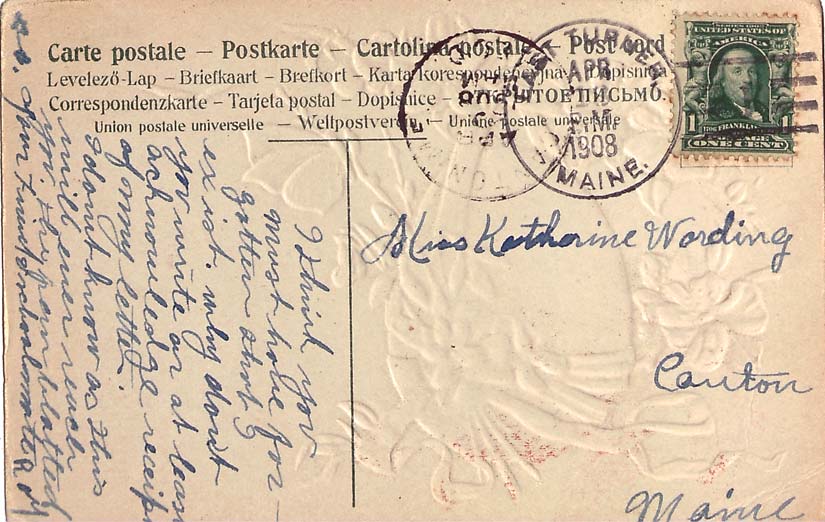 Carte postale – Postkarte – Cartolina postale – Post card
Levelező-Lap – Briefkaart – Brefkort – Karta korespondencyjna – Dopisnica
Correspondenzkarte – Tarjeta postal – Dopisnice – ОТКРЫТОЕ ПИСЬМО.
Union postale universelle – Weltpostverein – Unione postale universale
TURNER
APR
P.M.
1908
MAINE.
CANTON
APR
UNITED STATES OF
AMERICA
1706 FRANKLIN
1 ONE CENT 1
Miss Katharine Wording
Canton
Maine
I think you
must have for-
gotten that I
exist. why don't
you write or at least
acknowledge receipt
of my letter.
I don't know as this
will ever reach
you they are blotted
your friend & schoolmate